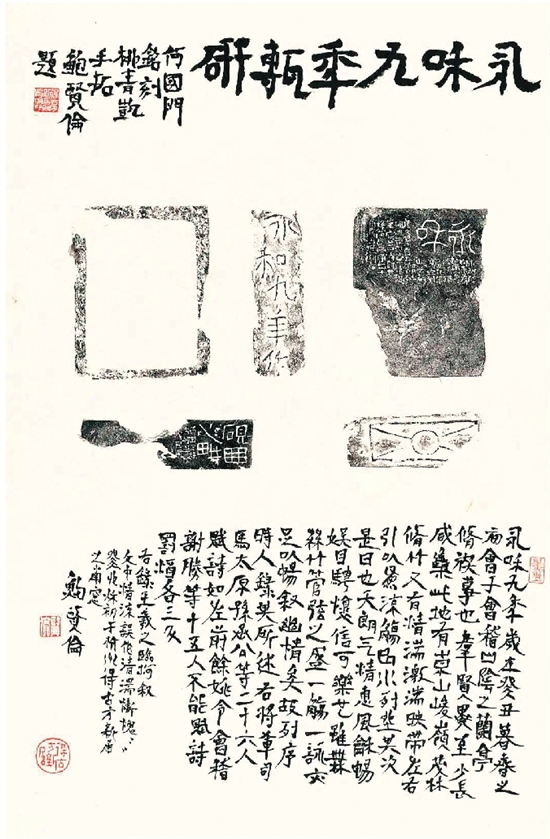 永咊九年甎研
何國門
銘刻
手拓
鮑賢倫
題
永咊
永和九年作
硯田
心畊
永咊九年歲在癸丑暮春之
會于會稽山陰之蘭亭
脩禊事也羣賢畢至少長
咸集此地有崇山峻嶺茂林
脩竹又有清湍激湍映帶左右
引以爲流觴曲水列坐其次
是日也天朗气清惠風龢暢
娛目騁懷信可樂也雖無
絲竹管弦之盛一觴一詠亦
足以暢敘幽情矣故列序
時人錄其所述右將軍司
馬太原孫丞公等二十六人
賦詩如左前餘姚令會稽
謝勝等十五人不能賦詩
罰酒各三斗
右錄王羲之臨河敘
文中清流誤作清湍慚愧〃
鮑賢倫